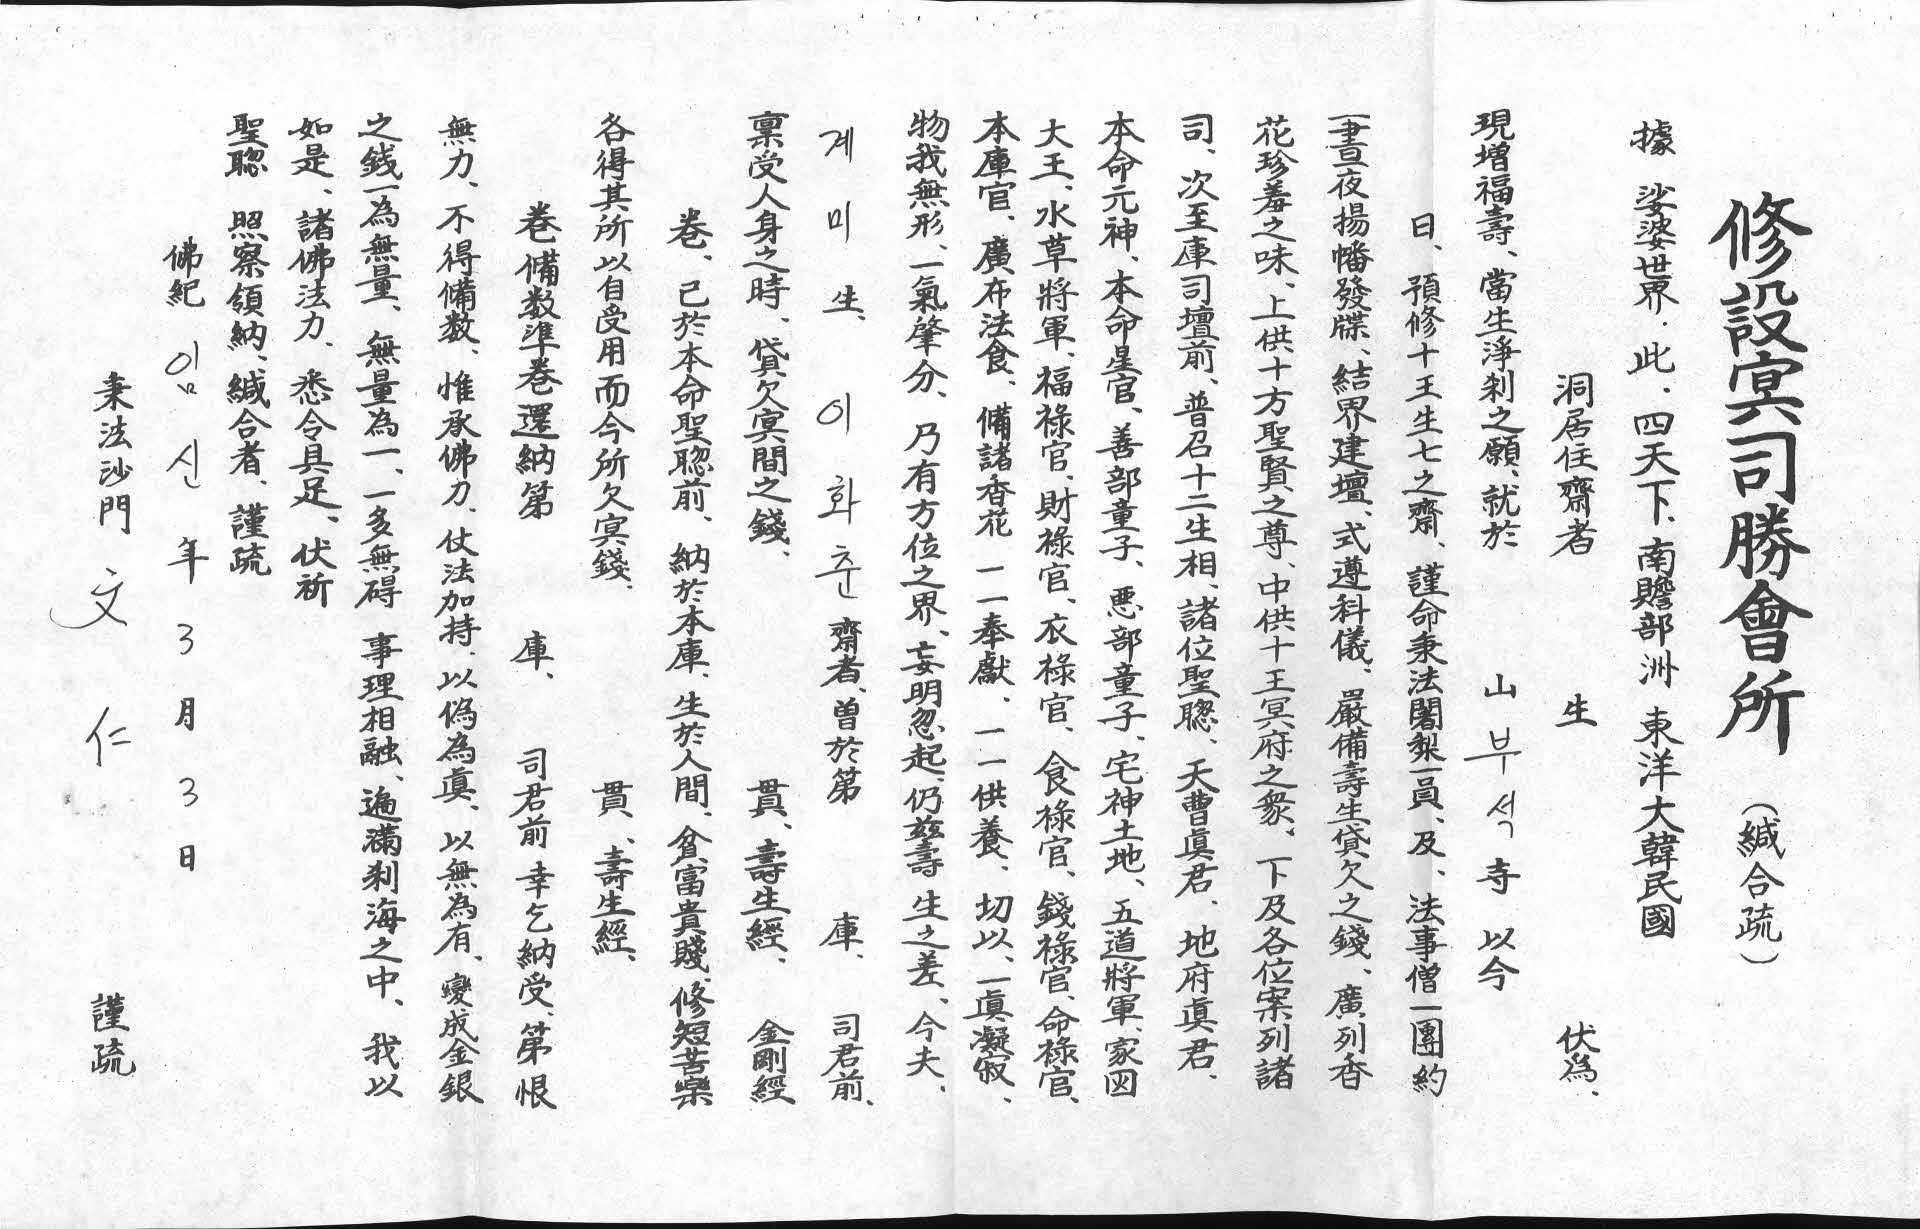 修設冥司勝會所 (緘合疏)
據 娑婆世界、此、四天下、南贍部洲 東洋大韓民國
洞居住齋者 生 伏爲、
現增福壽、當生淨刹之願、就於 山 부석 寺 以今
日、預修十王生七之齋、謹命秉法闍梨一員、及、法事僧一團約
一晝夜揚幡發牒、結界建壇、式遵科儀、嚴備壽生貸欠之錢、廣列香
花珍羞之味、上供十方聖賢之尊、中供十王冥府之衆、下及各位案列諸
司、次至庫司壇前、普召十二生相、諸位聖聰、天曹眞君、地府眞君、
本命元神、本命星官、善部童子、惡部童子、宅神土地、五道將軍、家囚
大王、水草將軍、福祿官、財祿官、衣祿官、食祿官、錢祿官、命祿官、
本庫官、廣布法食、備諸香花 一一奉獻、一一供養、切以、一眞凝寂、
物我無形、一氣肇分、乃有方位之界、妄明忽起、仍玆壽生之差、今夫、
계미생、이화춘 齋者、曾於第 庫、司君前、
稟受人身之時、貸欠冥間之錢、 貫、壽生經、金剛經
卷、已於本命聖聰前、納於本庫、生於人間、貧富貴賤、修短苦樂
各得其所以自受用而今所欠冥錢、 貫、壽生經、
卷備数準卷還納第 庫、司君前 幸乞納受、第恨
無力、不得備数、惟承佛力、仗法加持、以僞為眞、以無為有、變成金銀
之錢一為無量、無量為一、一多無碍 事理相融、遍滿刹海之中、我以
如是、諸佛法力、悉令具足、伏祈
聖聰 照察領納、緘合者、謹疏
佛紀 임신 年 3 月 3 日
秉法沙門 文 仁 謹疏